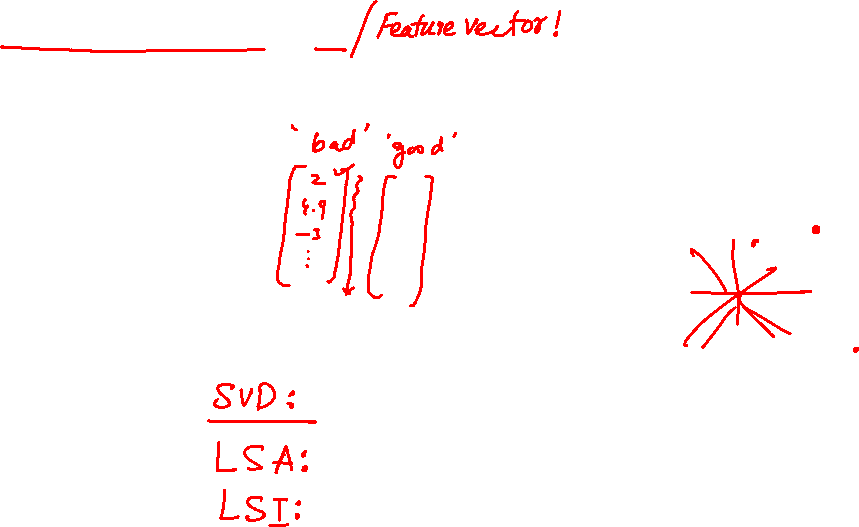 Feature vector!
'bad' 'good'
2
4.9
-3
⋮
SVD:
LSA:
LSI: